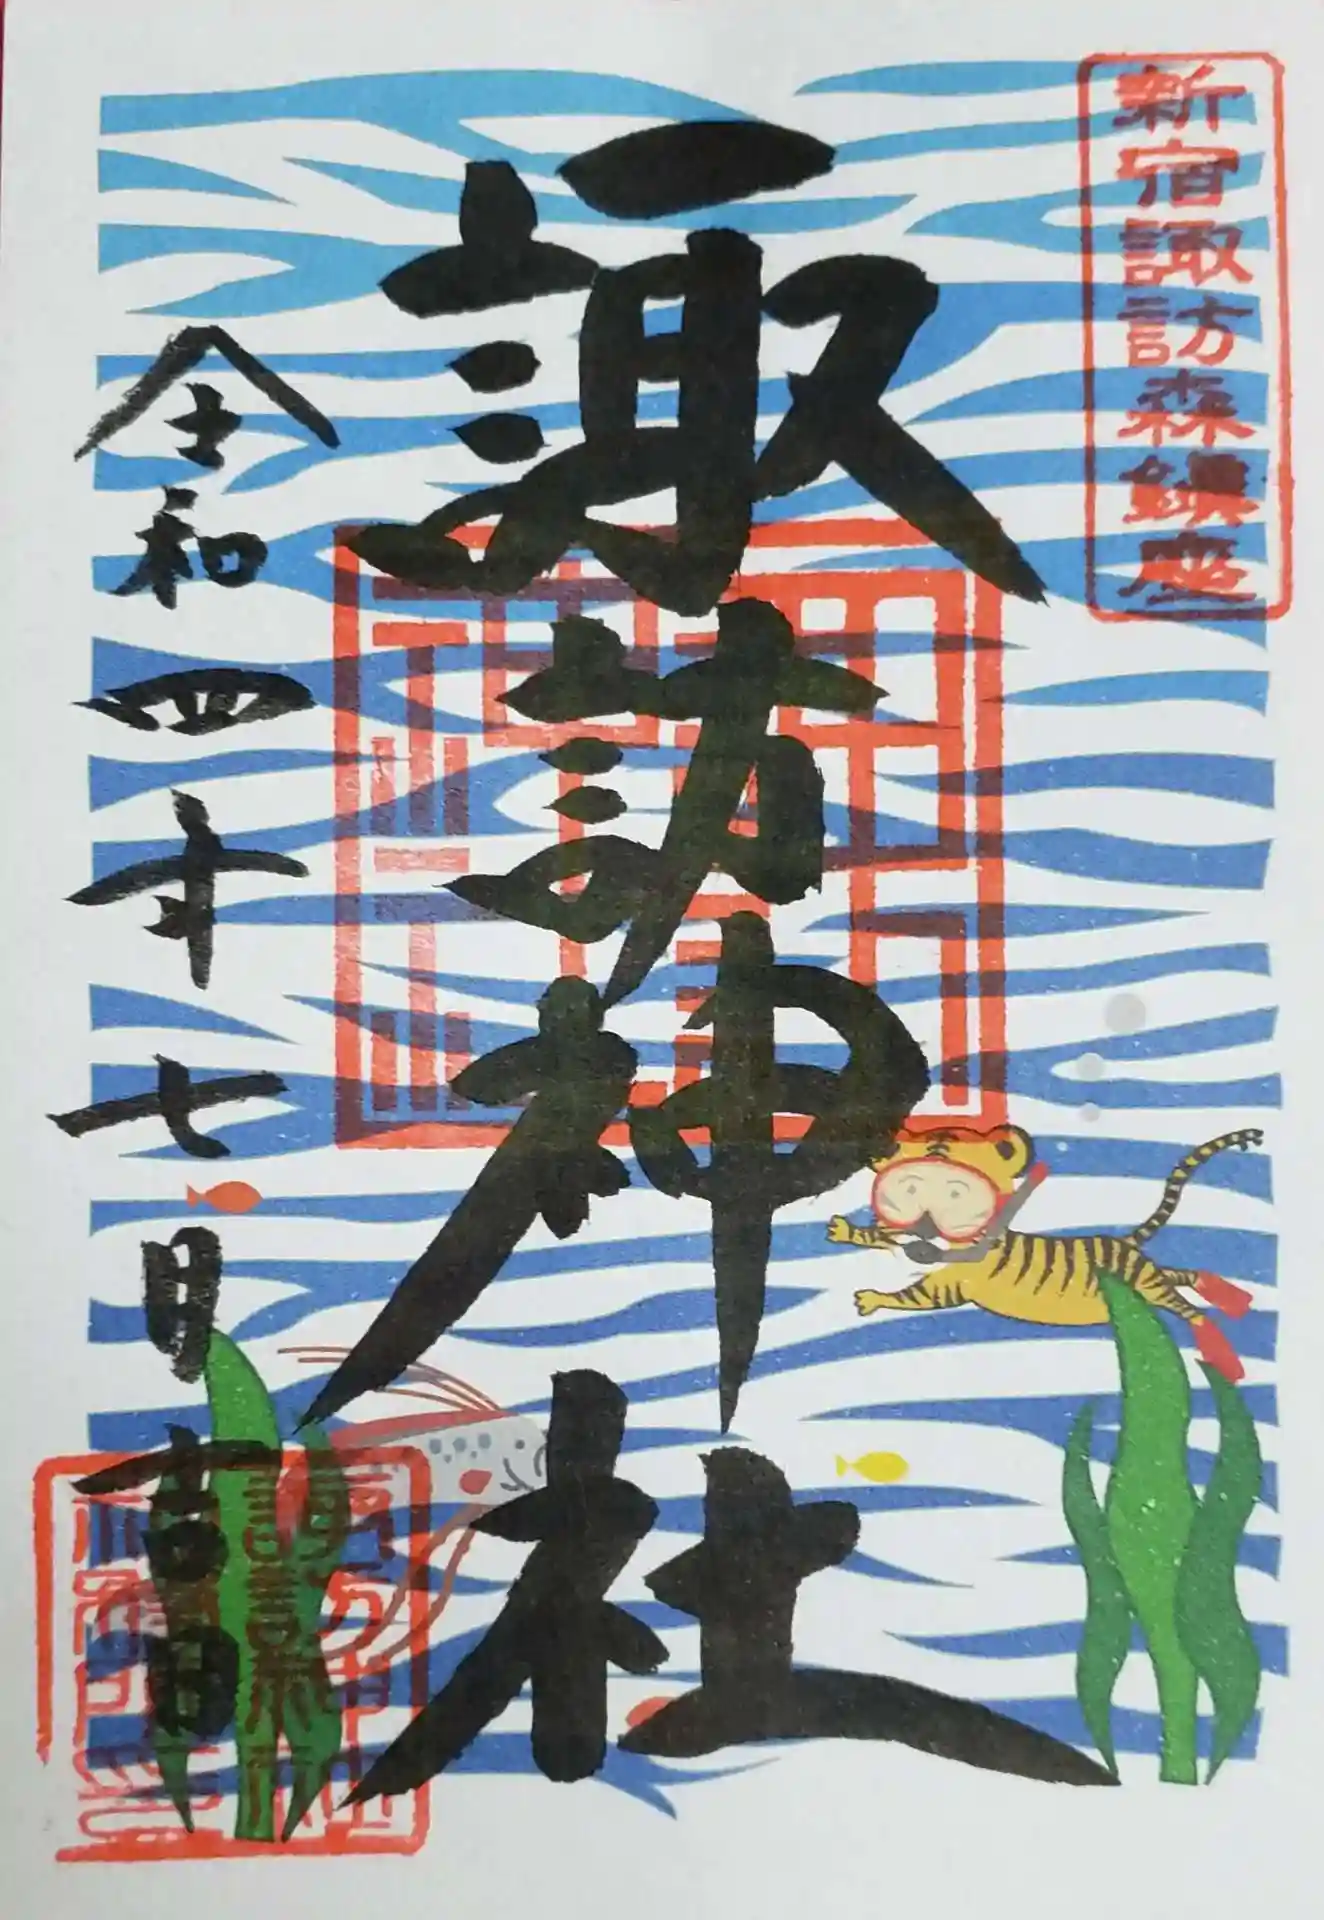 新宿諏訪森鎮座
諏訪神社
令和四年七月吉日